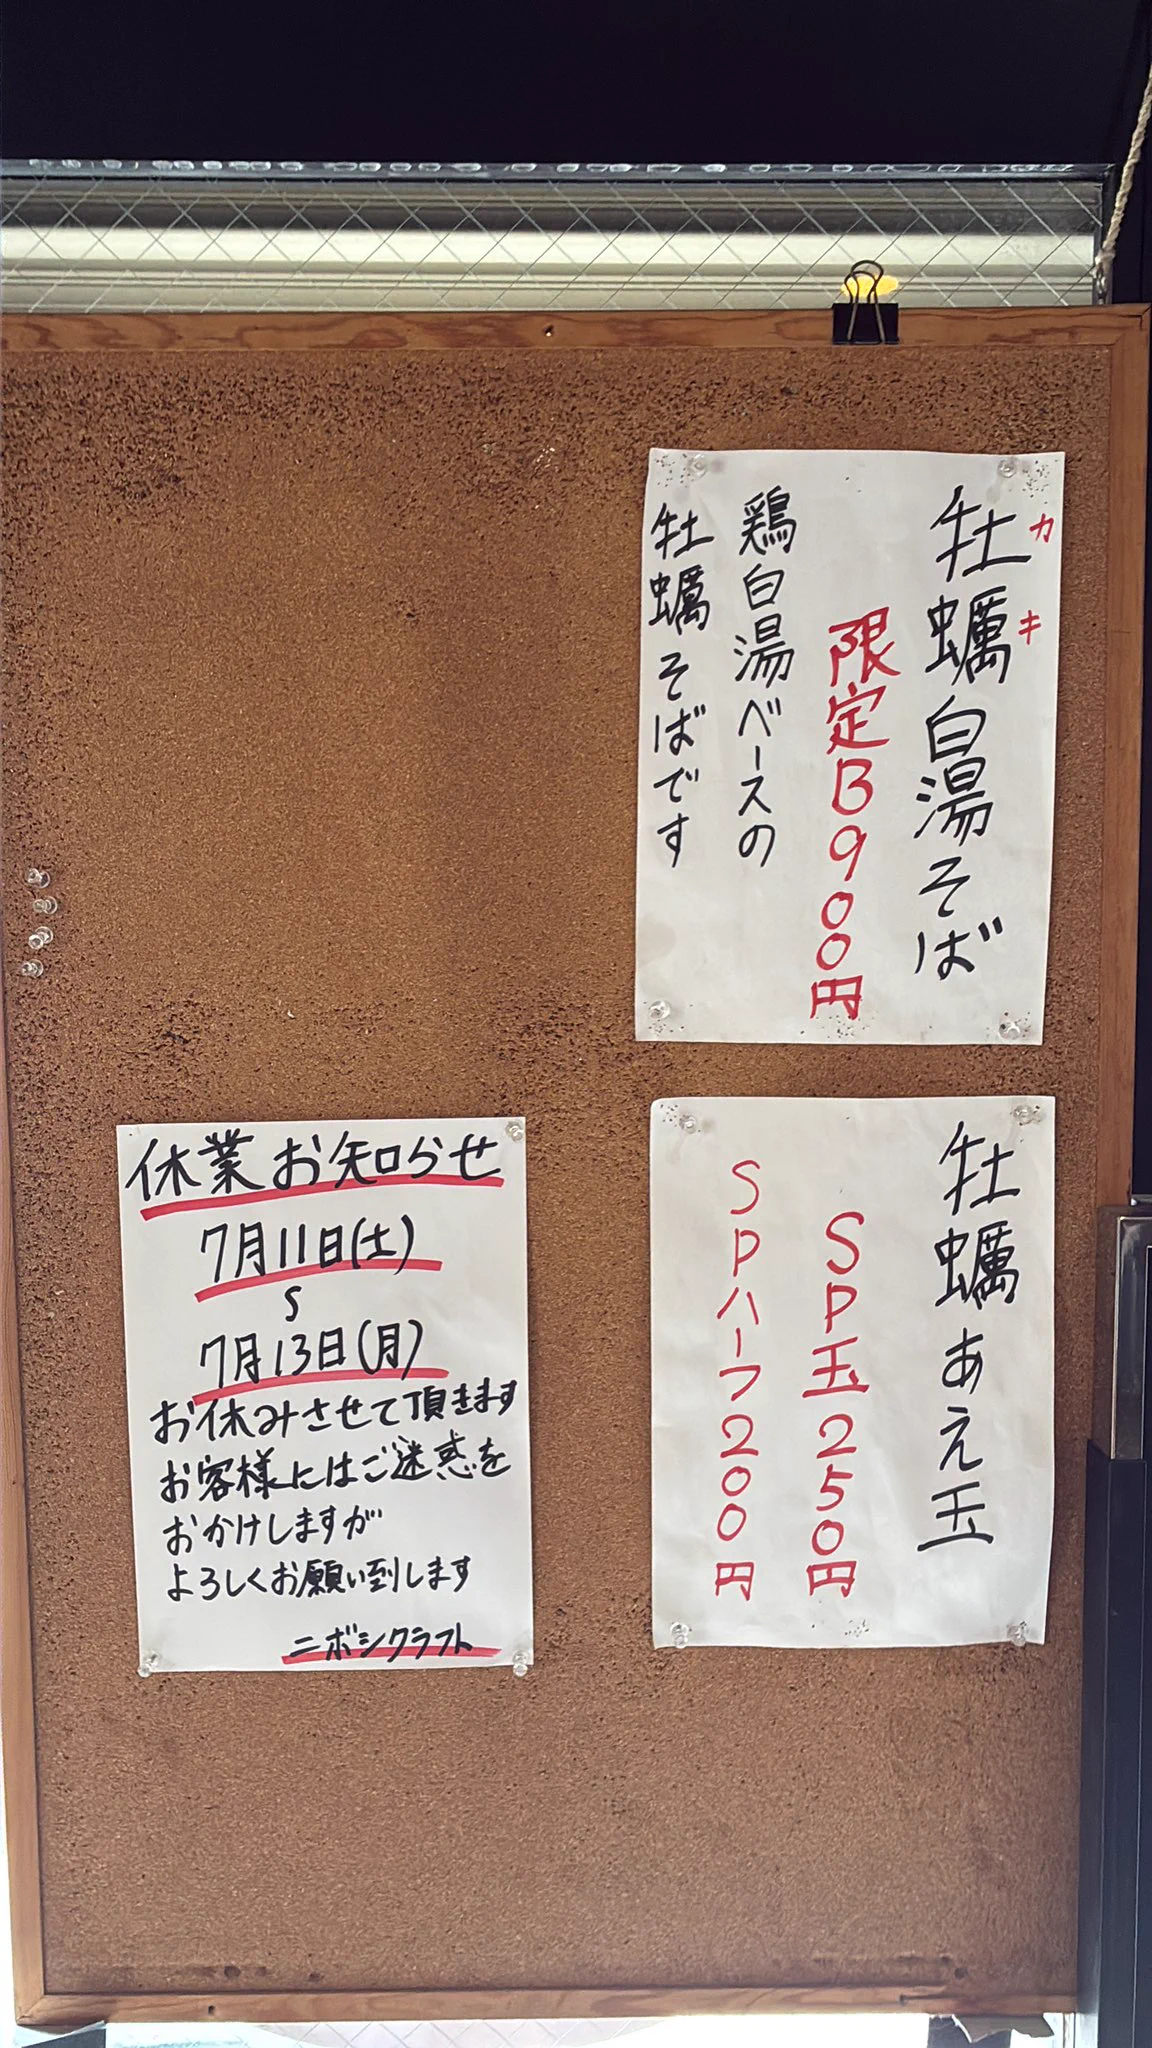 牡蠣白湯そば
カキ
限定B900円
鶏白湯ベースの
牡蠣そばです
牡蠣あえ玉
SP玉250円
SPハーフ200円
休業お知らせ
7月11日(土)
〜
7月13日(月)
お休みさせて頂きます
お客様にはご迷惑を
おかけしますが
よろしくお願い到します
ニボシクラフト